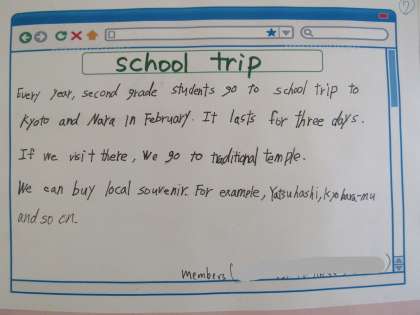 school trip
Every year, second grade students go to school trip to
Kyoto and Nara in February. It lasts for three days.
If we visit there, we go to traditional temple.
We can buy local souvenir. For example, Yatsuhashi, Kyobara-mu
and so on.
members (
)